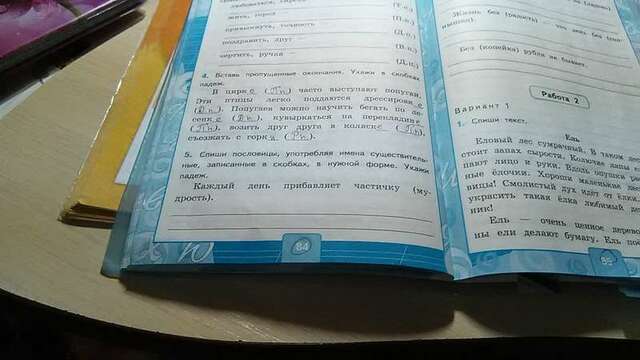 (Т.п.)
жить, город
(П.п.)
привыкнуть,
(Д.п.)
поздравить, друг
(В.п.)
чертить, ручка
(Д.п.)
4. Вставь пропущенные окончания. Укажи в скобках
падеж.
В цирке (Пп) часто выступают попугаи.
Эти птицы легко поддаются дрессировке
(Дп). Попугаев можно научить бегать по ле-
сенке (Дп), кувыркаться на перекладине
(Пп), возить друг друга в коляске (Пп),
съезжать с горки (Рп).
5. Спиши пословицы, употребляя имена существитель-
ные, записанные в скобках, в нужной форме. Укажи
падеж.
Каждый день прибавляет частичку (му-
дрость).
84
Жизнь без (радости)
Без (копейка) рубля не бывает.
Работа 2
Вариант 1
1. Спиши текст.
Ель
Еловый лес сумрачный. В таком ле
стоит запах сырости. Колючие лапы
пают лицо и руки. Вдоль опушки ра
ные ёлочки. Хороши маленькие лес
вицы! Смолистый дух идёт от ёлки.
украсить такая ёлка любимый дет
ник!
Ель — очень ценное дерево
ны ели делают бумагу. Ель пос
85